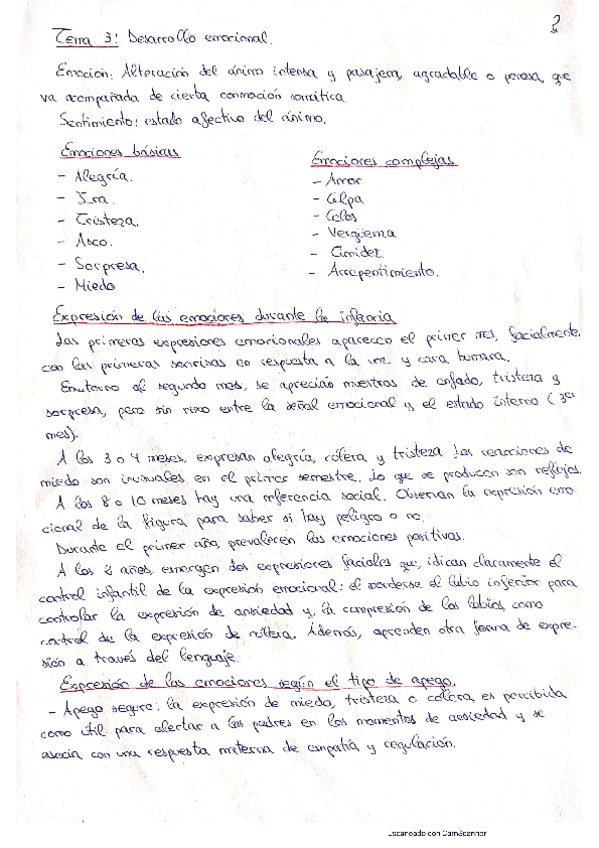 ?
Tema 3: Desarrollo emocional.
Emoción: Alteración del ánimo intensa y pasajera, agradable o penosa, que
va acompañada de cierta conmoción somática
Sentimiento: estado afectivo del ánimo.
Emociones básicas
- Alegría.
- Ira.
- Tristeza.
- Asco.
- Sorpresa.
- Miedo
Emociones complejas
- Amor
- Culpa
- Celos
- Vergüenza
- Timidez
- Arrepentimiento.
Expresión de las emociones durante la infancia
Las primeras expresiones emocionales aparecen el primer mes, facialmente,
con las primeras sonrisas en respuesta a la voz y cara humana.
En torno al segundo mes, se aprecian muestras de enfado, tristeza y
sorpresa, pero sin nexo entre la señal emocional y el estado interno (3er
mes).
A los 3 o 4 meses, expresan alegría, cólera y tristeza. Las reacciones de
miedo son inusuales en el primer semestre. Lo que se producen son reflejos.
A los 8 o 10 meses hay una referencia social. Observan la expresión emo-
cional de la figura para saber si hay peligro o no.
Durante el primer año, prevalecen las emociones positivas.
A los 2 años, emergen dos expresiones faciales que, idican claramente el
control infantil de la expresión emocional: el morderse el labio inferior para
controlar la expresión de ansiedad y, la compresión de los labios como
control de la expresión de cólera. Además, aprenden otra forma de expre-
sión a través del lenguaje.
Expresión de las emociones según el tipo de apego.
- Apego seguro: la expresión de miedo, tristeza o cólera, es percibida
como útil para alertar a los padres en los momentos de ansiedad y se
asocia con una respuesta materna de empatía y regulación.
Escaneado con CamScanner